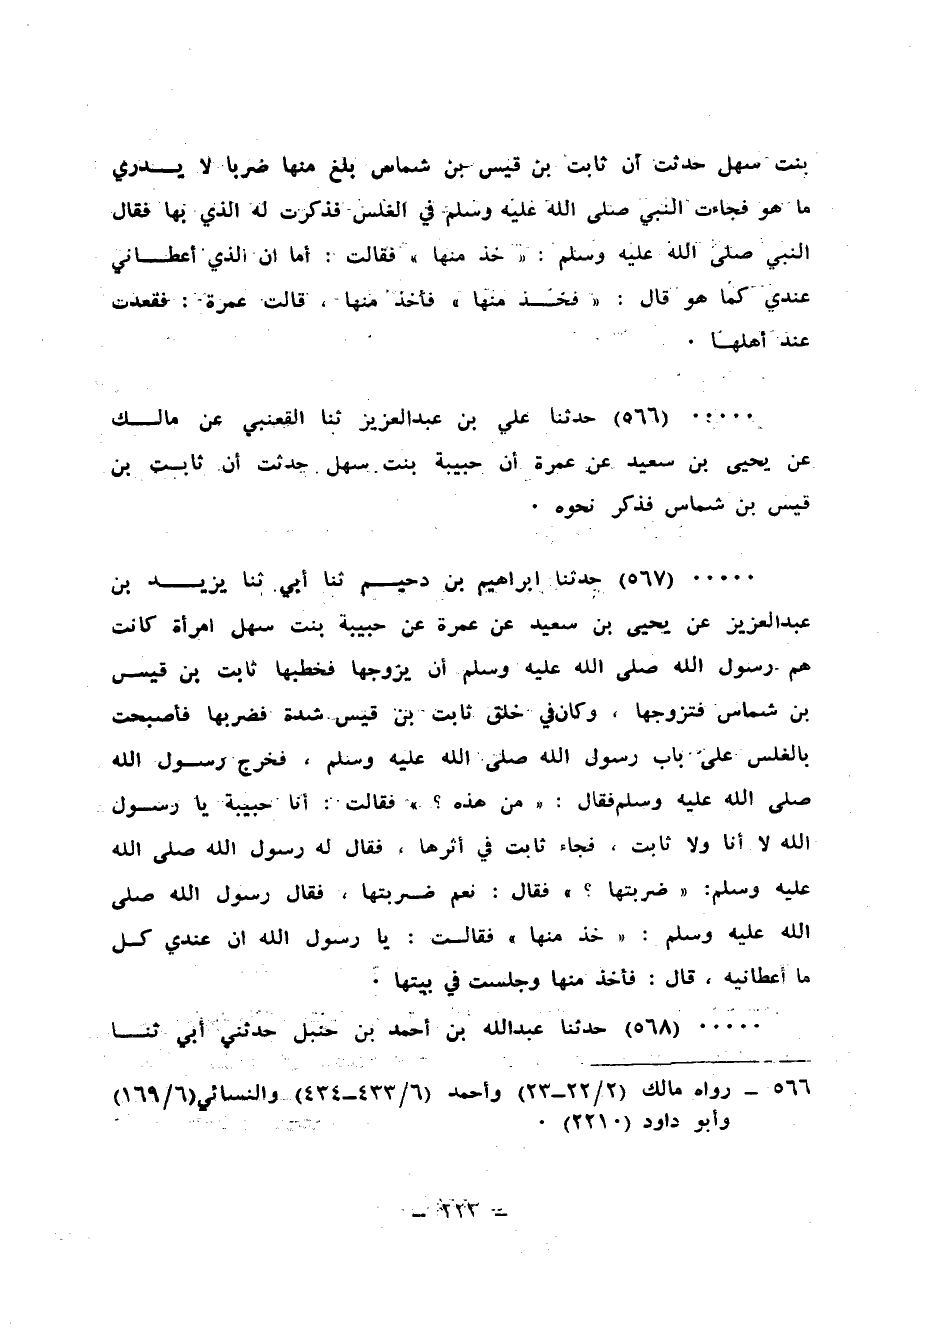 بنت سهل حدثت أن ثابت بن قيس بن شماس بلغ منها ضربا لا يدري
ما هو فجاءت النبي صلى الله عليه وسلم في الغلس فذكرت له الذي بها فقال
النبي صلى الله عليه وسلم : « خذ منها » فقالت : أما ان الذي أعطاني
عندي كما هو قال : « فخذ منها » فأخذ منها ، قالت عمرة : فقعدت
عند أهلها .
..... (٥٦٦) حدثنا علي بن عبدالعزيز ثنا القعنبي عن مالك
عن يحيى بن سعيد عن عمرة أن حبيبة بنت سهل حدثت أن ثابت بن
قيس بن شماس فذكر نحوه .
..... (٥٦٧) حدثنا ابراهيم بن دحيم ثنا أبي ثنا يزيد بن
عبدالعزيز عن يحيى بن سعيد عن عمرة عن حبيبة بنت سهل امرأة كانت
هم رسول الله صلى الله عليه وسلم أن يزوجها فخطبها ثابت بن قيس
بن شماس فتزوجها ، وكان في خلق ثابت بن قيس شدة فضربها فأصبحت
بالغلس على باب رسول الله صلى الله عليه وسلم ، فخرج رسول الله
صلى الله عليه وسلم فقال : « من هذه ؟ » فقالت : أنا حبيبة يا رسول
الله لا أنا ولا ثابت ، فجاء ثابت في أثرها ، فقال له رسول الله صلى الله
عليه وسلم: « ضربتها ؟ » فقال : نعم ضربتها ، فقال رسول الله صلى
الله عليه وسلم : « خذ منها » فقالت : يا رسول الله ان عندي كل
ما أعطانيه ، قال : فأخذ منها وجلست في بيتها .
..... (٥٦٨) حدثنا عبدالله بن أحمد بن حنبل حدثني أبي ثنا
٥٦٦ ـ رواه مالك (٢/٢٢ـ٢٣) وأحمد (٦/٤٣٣ـ٤٣٤) والنسائي(٦/١٦٩)
وأبو داود (٢٢١٠) .
ـ ٢٢٣ ـ